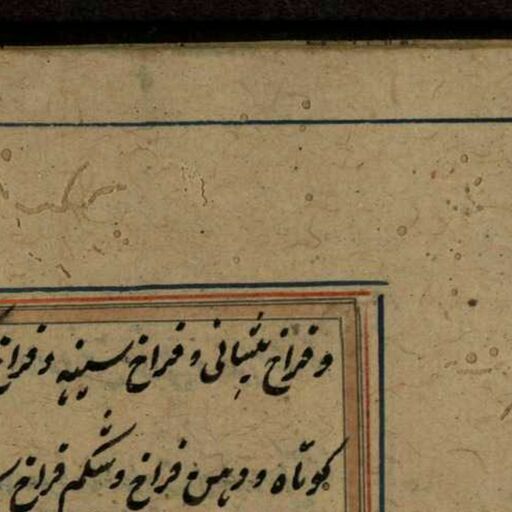 و فراخ پیشانی و فراخ سینه و فراخ
کوتاه و دهن فراخ و شکم فراخ